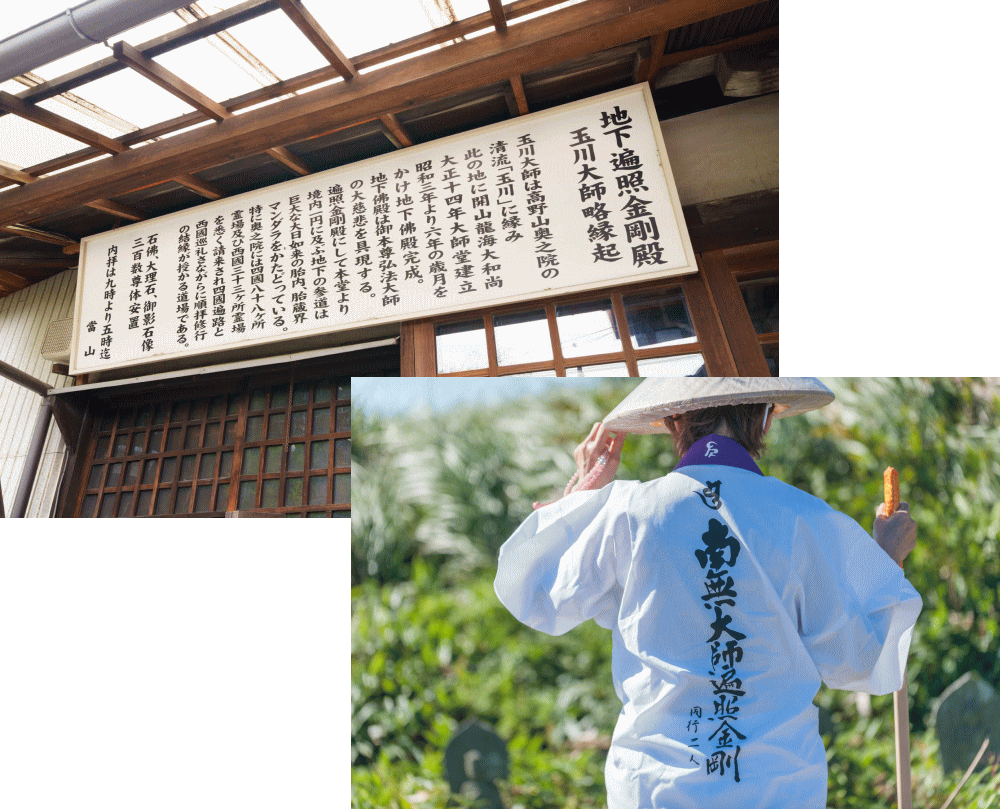 地下遍照金剛殿
玉川大師略縁起
玉川大師は高野山奥之院の
清流「玉川」に縁み
此の地に開山龍海大和尚
大正十四年大師堂建立
昭和三年より六年の歳月を
かけ地下佛殿完成。
地下佛殿は御本尊弘法大師
の大慈悲を具現する。
遍照金剛殿にして本堂より
境内一円に及ぶ地下の参道は
巨大な大日如来の胎内、胎蔵界
マンダラをかたとっている。
特に奥之院には四國八十八ヶ所
霊場及び西國三十三ヶ所霊場
を悉く請来され四國遍路と
西國巡礼さながらに順拝修行
の結縁が授かる道場である。
石佛、大理石、御影石像
三百数尊体安置
内拝は九時より五時迄
當山
南無大師遍照金剛
同行二人